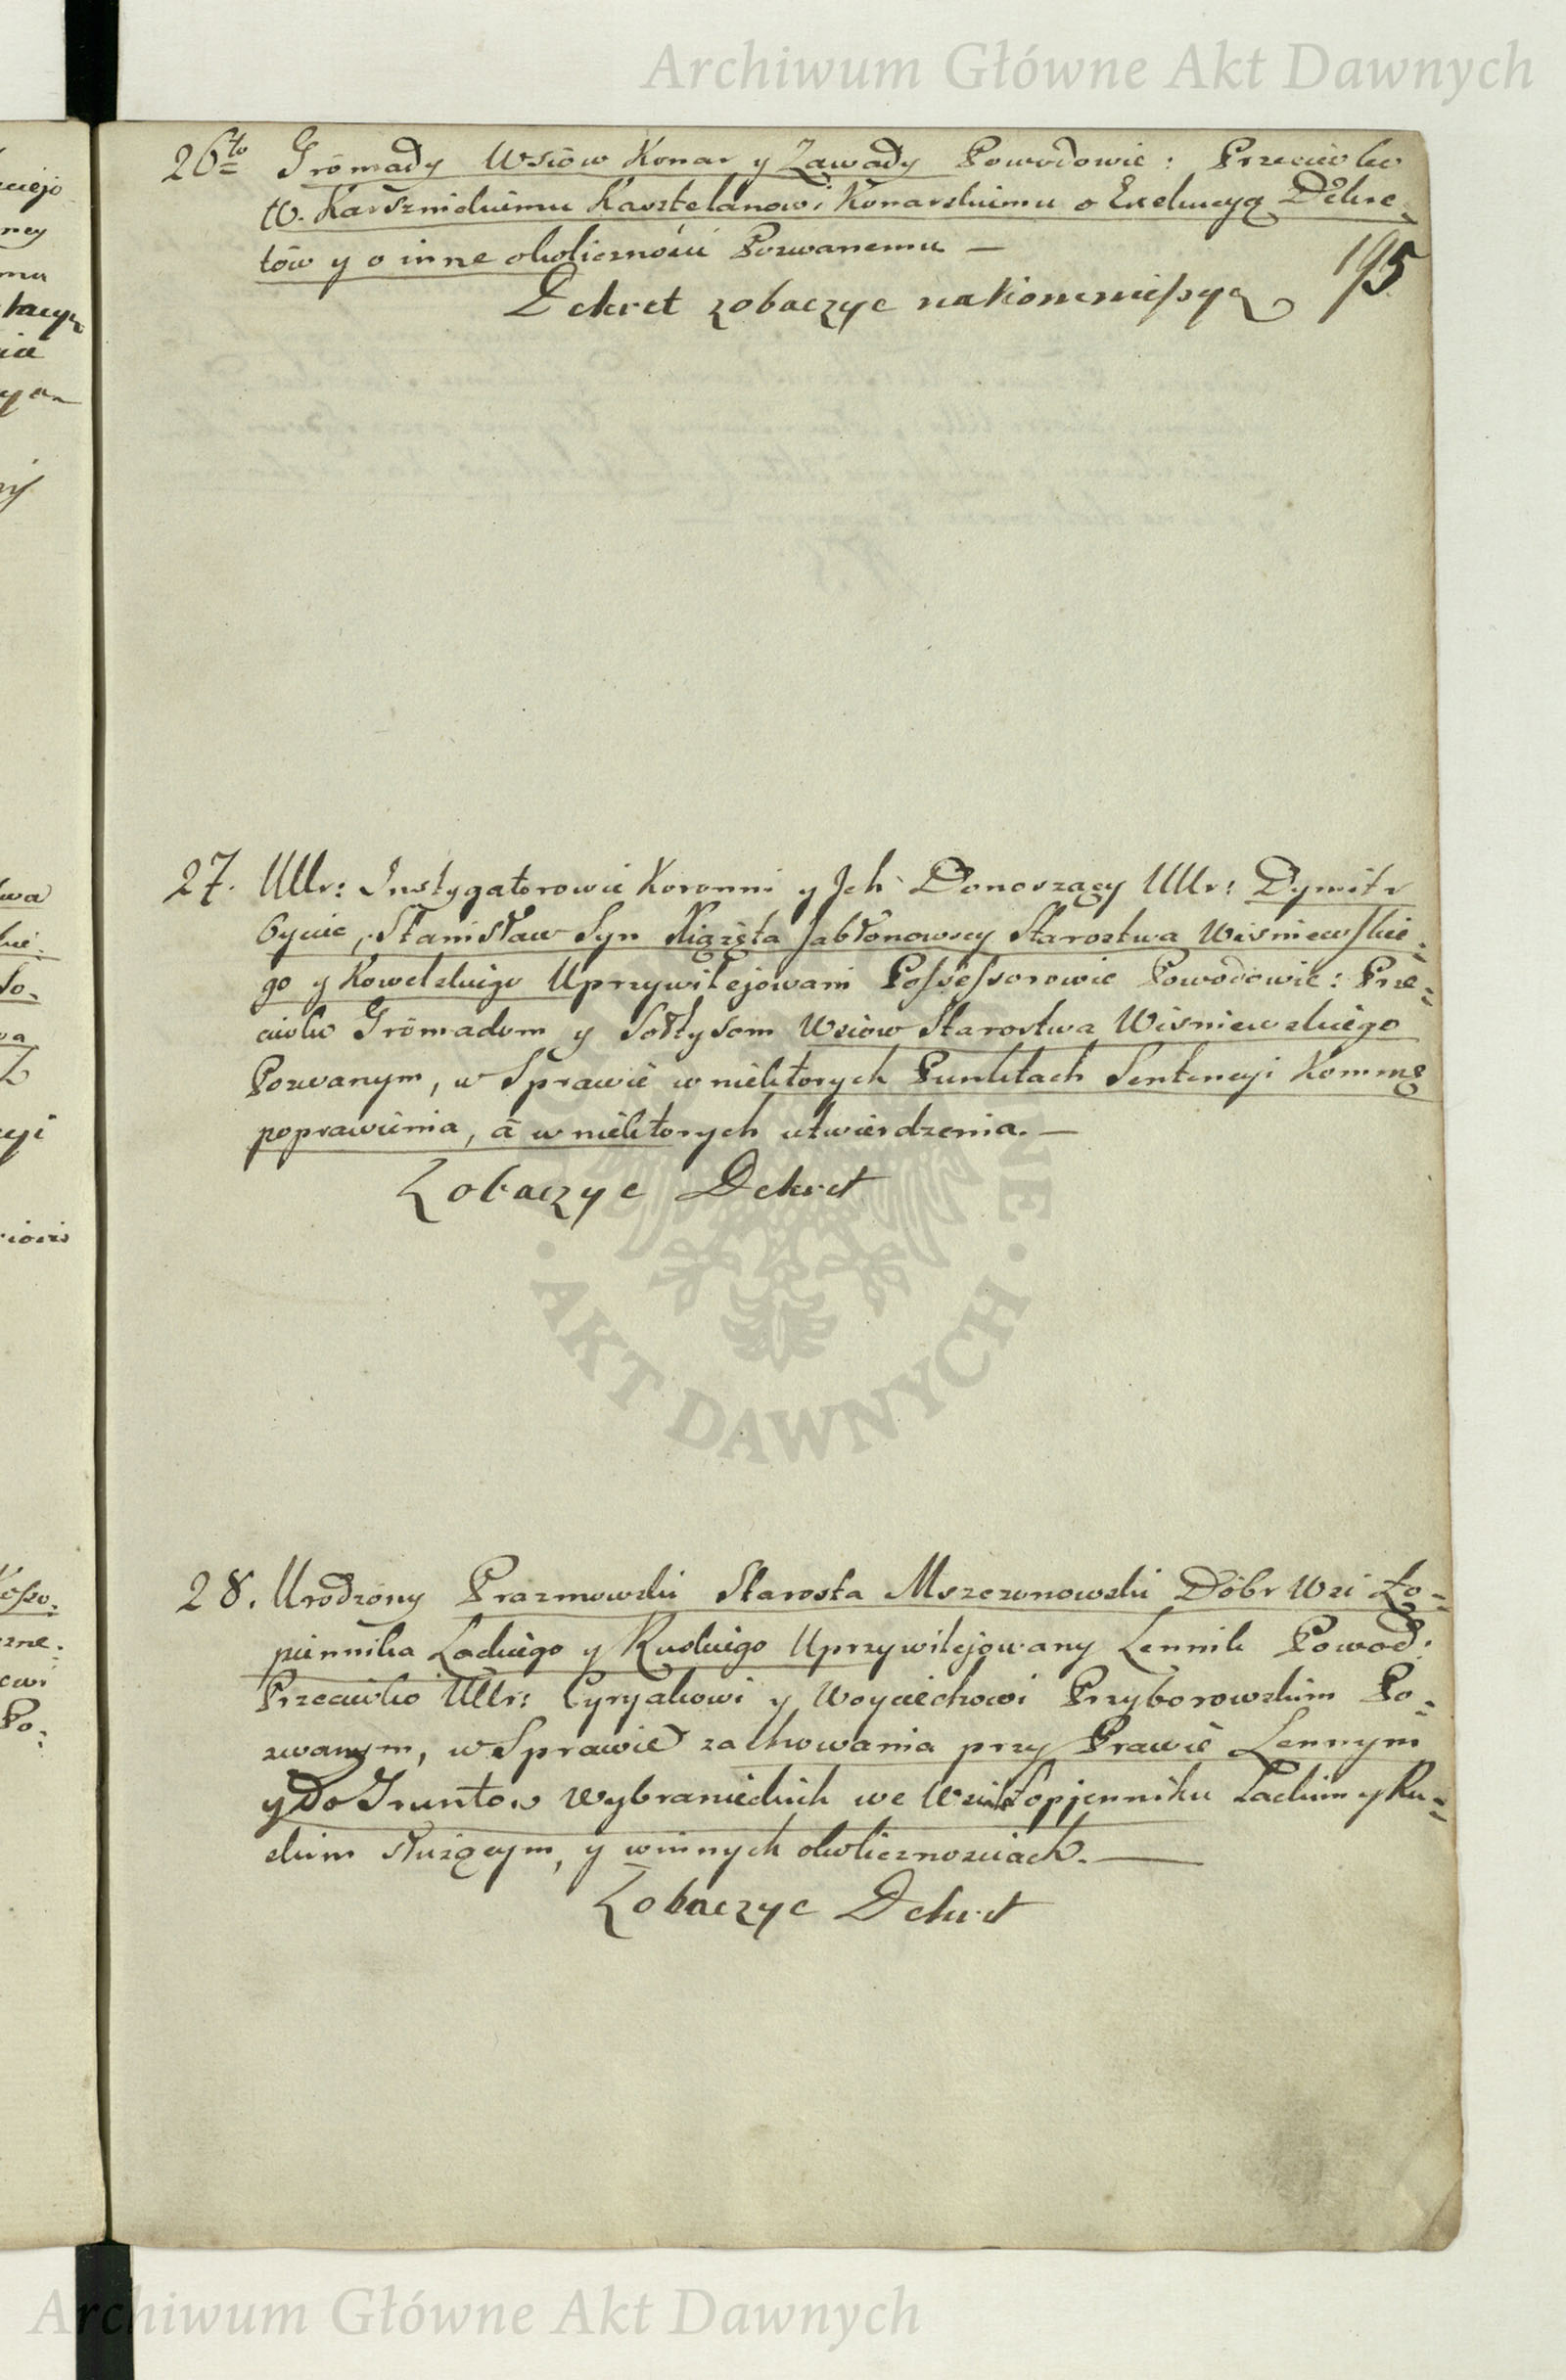 Archiwum Główne Akt Dawnych
26to Gromady Wsiow Konar y Zawady Powodowie: Przeciwko
W. Karsznickiemu Kasztelanowi Konarskiemu o Exekucyą Dekre=
tów y o inne okoliczności Pozwanemu —
195
Dekret zobaczyc na Kommissyą
27. UUr: Instygatorowie Koronni y Jch Donoszący UUr: Dymitr
Oyciec, Stanisław Syn Xiążęta Jabłonowscy Starostwa Wisniewskie=
go y Kowelskiego Uprzywilejowani Possessorowie Powodowie: Prze=
ciwko Gromadom y Sołtysom Wsiow Starostwa Wisniewskiego
Pozwanym, w Sprawie w niektorych Punktach Sentencyi Kommg
poprawienia, á w niektorych utwierdzenia. —
Zobaczyc Dekret
28. Urodzony Prazmowski Starosta Mszczonowski Dóbr Wsi Ło=
piennika Lackiego y Ruskiego Uprzywilejowany Lennik Powod:
Przeciwko UUr: Cyryakowi y Woyciechowi Przyborowskim Po=
zwanym, w Sprawie zachowania przy Prawie Lennym
y Do Gruntow Wybranieckich we Wsi Łopjenniku Lackim y Ru=
skim służącym, y w innych okolicznosciach. —
Zobaczyc Dekret
AKT DAWNYCH
Archiwum Główne Akt Dawnych